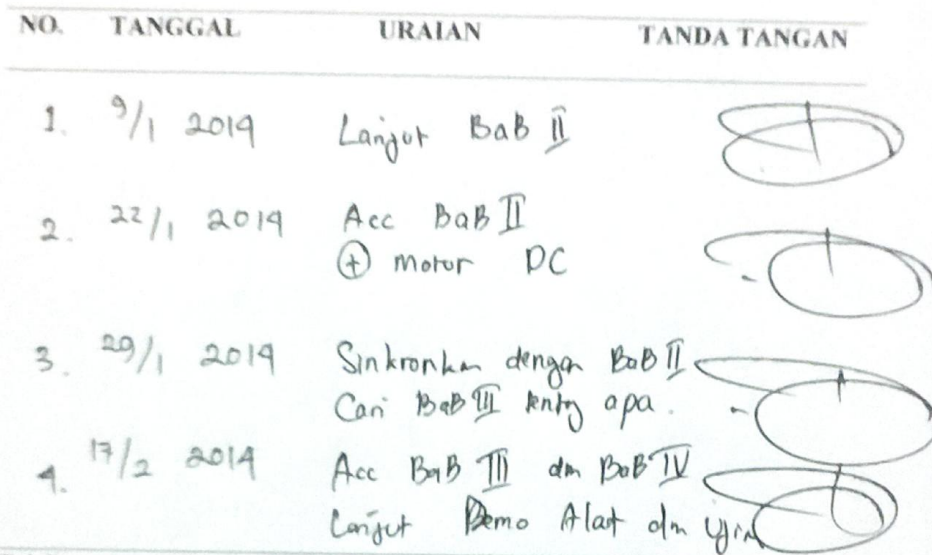 NO. TANGGAL URAIAN TANDA TANGAN
1. 9/1 2014 Lanjut BaB II
2. 22/1 2014 Acc BaB II
⊕ motor DC
3. 29/1 2014 Sinkronkan dengan BaB II
Cari BaB III tentg apa.
4. 17/2 2014 Acc BaB III dan BaB IV
Lanjut Demo Alat dan Ujian